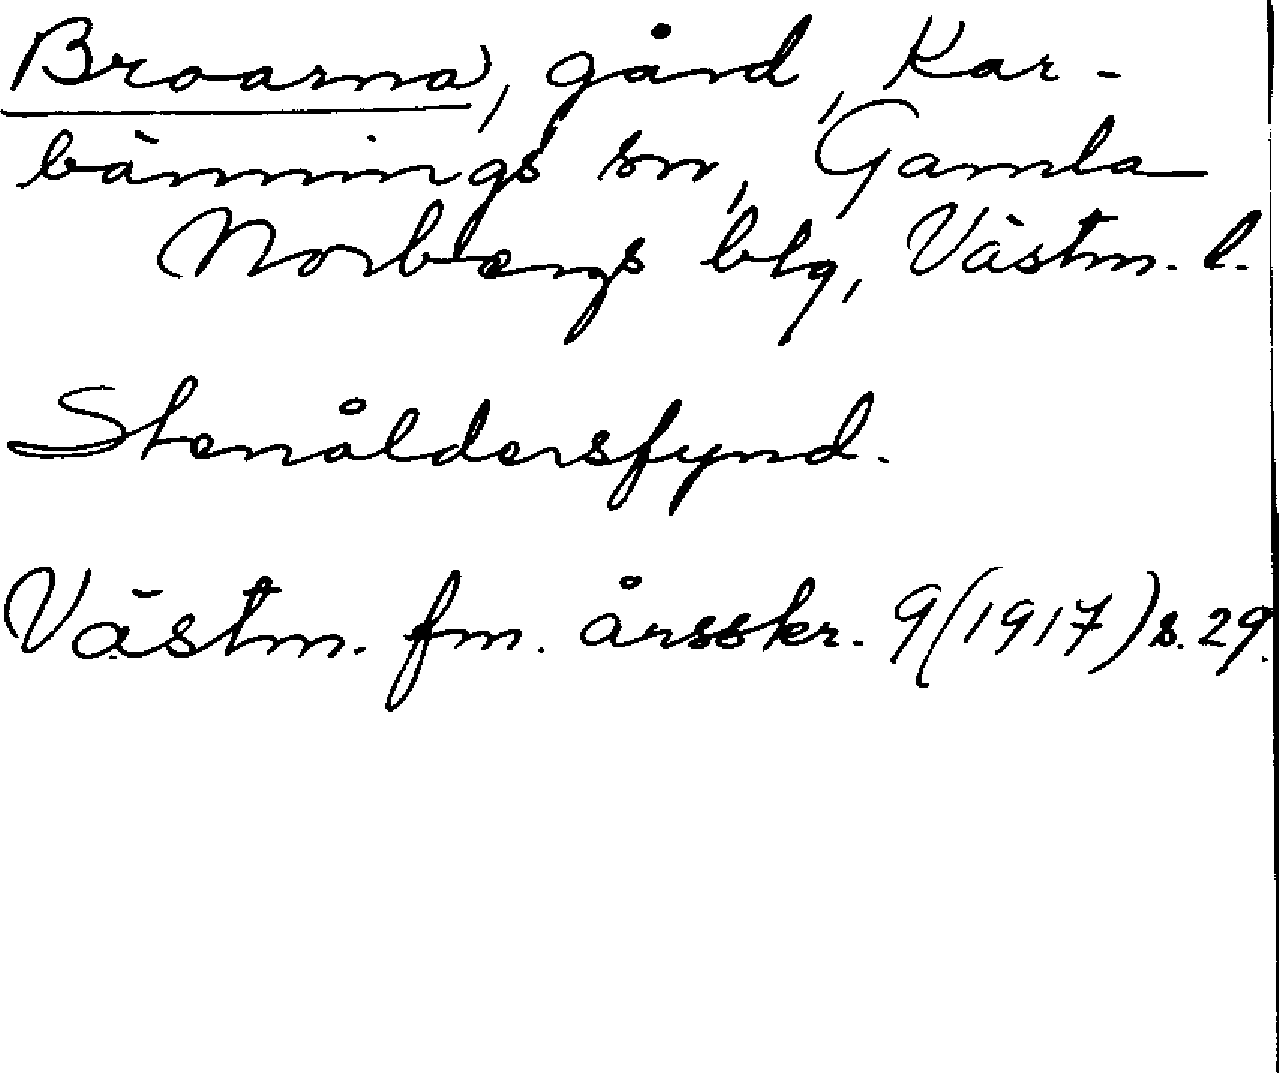 Broarna, gård, Kar-
bännings sn, Gamla
Norbergs blg, Västm. l.
Stenåldersfynd.
Västm. fm. årsskr. 9(1917)s.29.